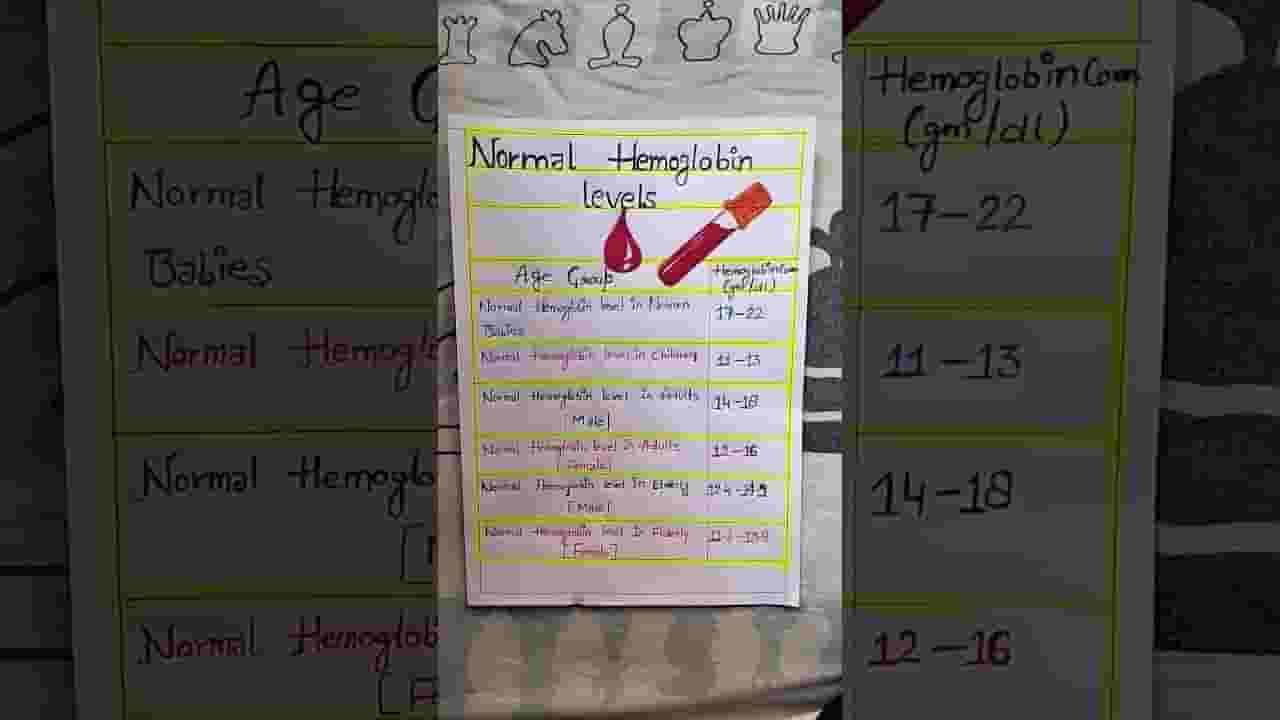 Normal Hemoglobin
levels
Age Group
Hemoglobin Com
(gm/dl)
Normal Hemoglobin level in Newborn
Babies
17-22
Normal Hemoglobin level in Children
11-13
Normal Hemoglobin level in Adults
[Male]
14-18
Normal Hemoglobin level in Adults
[Female]
12-16
Normal Hemoglobin level in Elderly
[Male]
Normal Hemoglobin level in Elderly
[Female]
Age
Normal
Babies
Normal
Normal
Normal
Hemoglobin Com
(gm/dl)
17-22
11-13
14-18
12-16